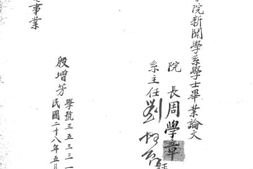 院新聞學系學士畢業論文
院長周學章
系主任劉
事業
殷增芳
學號三五三三一
民國二十八年五月